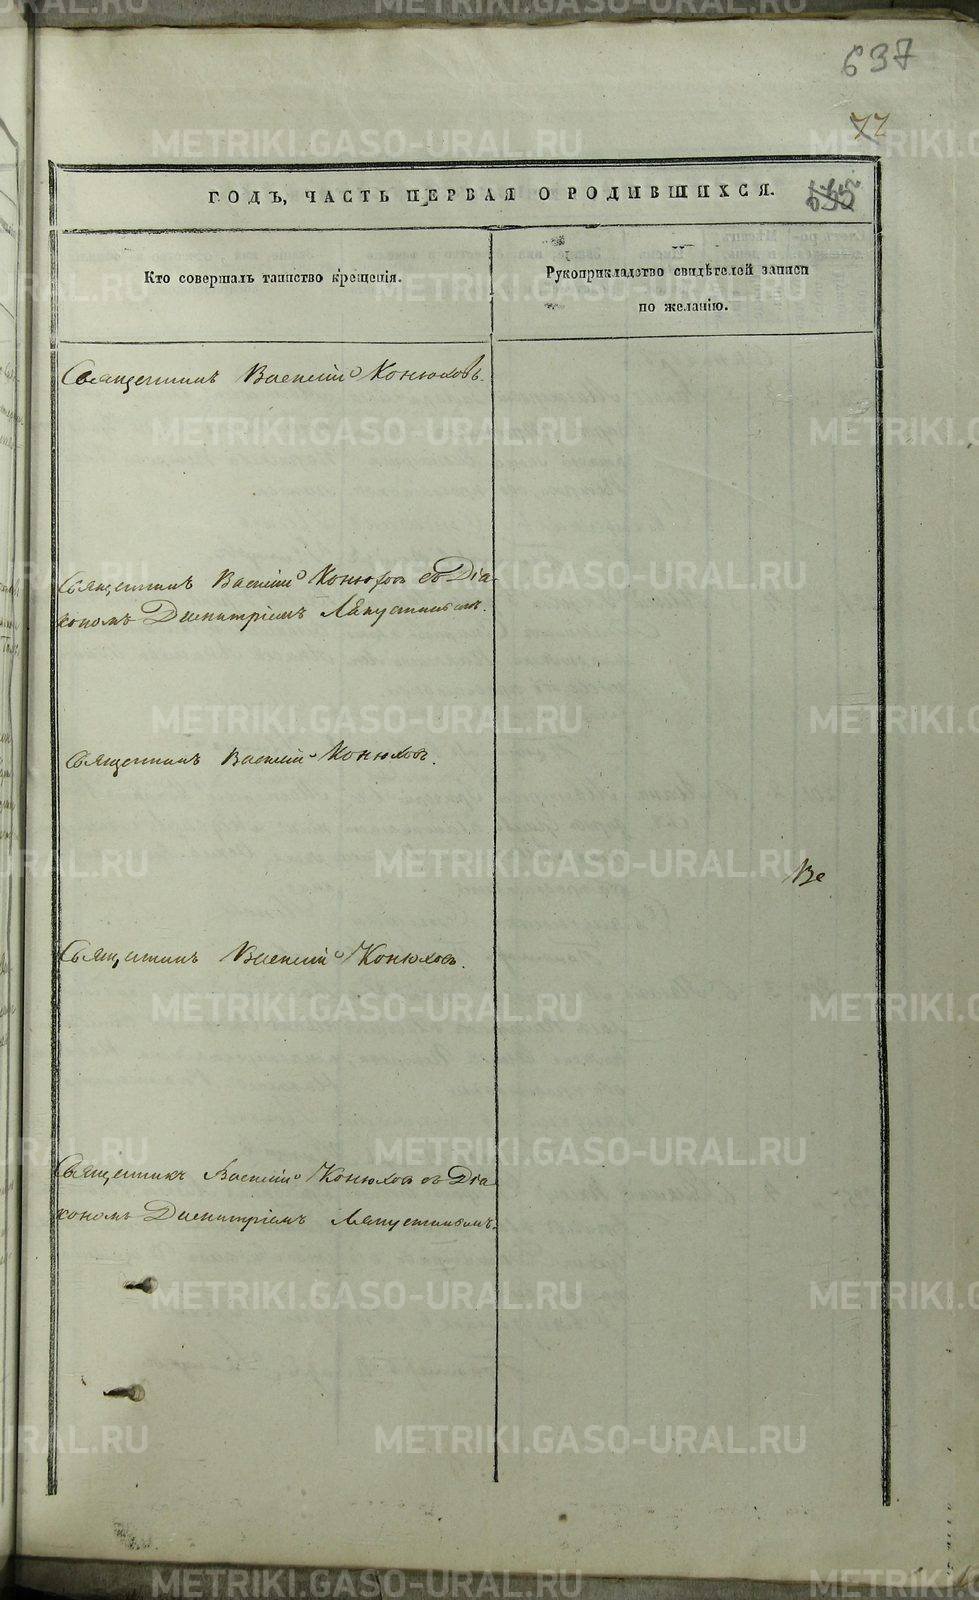 637
77
ГОДЪ, ЧАСТЬ ПЕРВАЯ О РОДИВШИХСЯ.
635
Кто совершалъ таинство крещенія.
Рукоприкладство свидѣтелей записи
по желанію.
Священникъ Василій Конюховъ.
Священникъ Василій Конюховъ съ Діа-
кономъ Димитріемъ
Священникъ Василій Конюховъ.
Ве
Священникъ Василій Конюховъ.
Священникъ Василій Конюховъ съ Діа-
кономъ Димитріемъ
METRIKI.GASO-URAL.RU